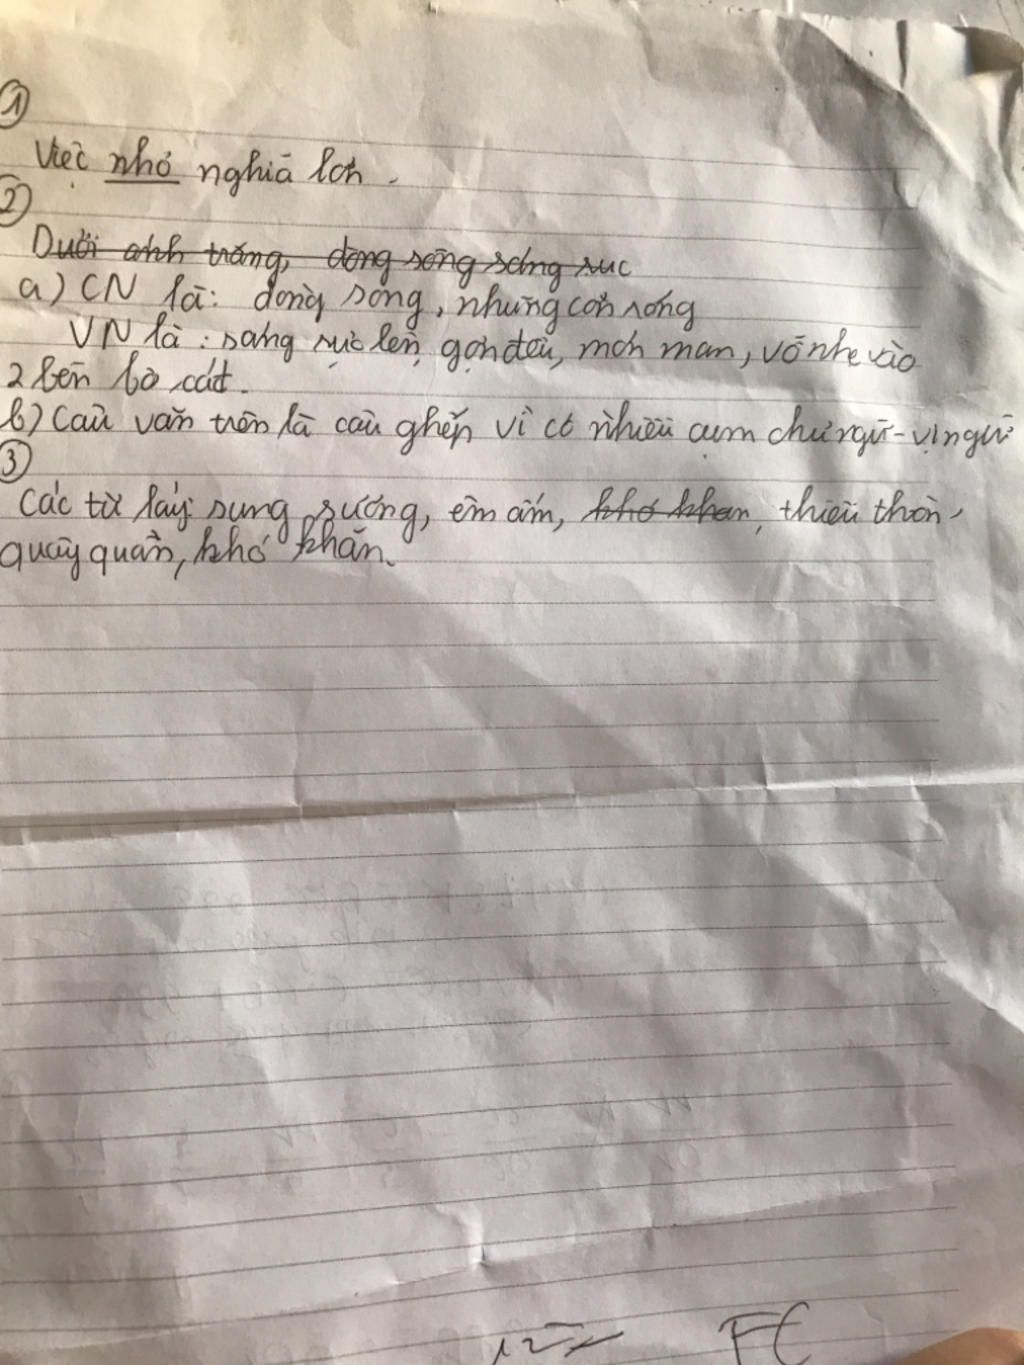 ①
Việc nhỏ nghĩa lớn.
②
Dưới ánh trăng, dòng sông sáng rực
a) CN là: dòng sông, những con sóng
VN là: sáng rực lên, gợn đều, mơn man, vỗ nhẹ vào
2 bên bờ cát.
b) Câu văn trên là câu ghép vì có nhiều cụm chủ ngữ - vị ngữ
③
Các từ láy: sung sướng, êm ấm, khó khăn, thiếu thốn,
quây quần, khó khăn.